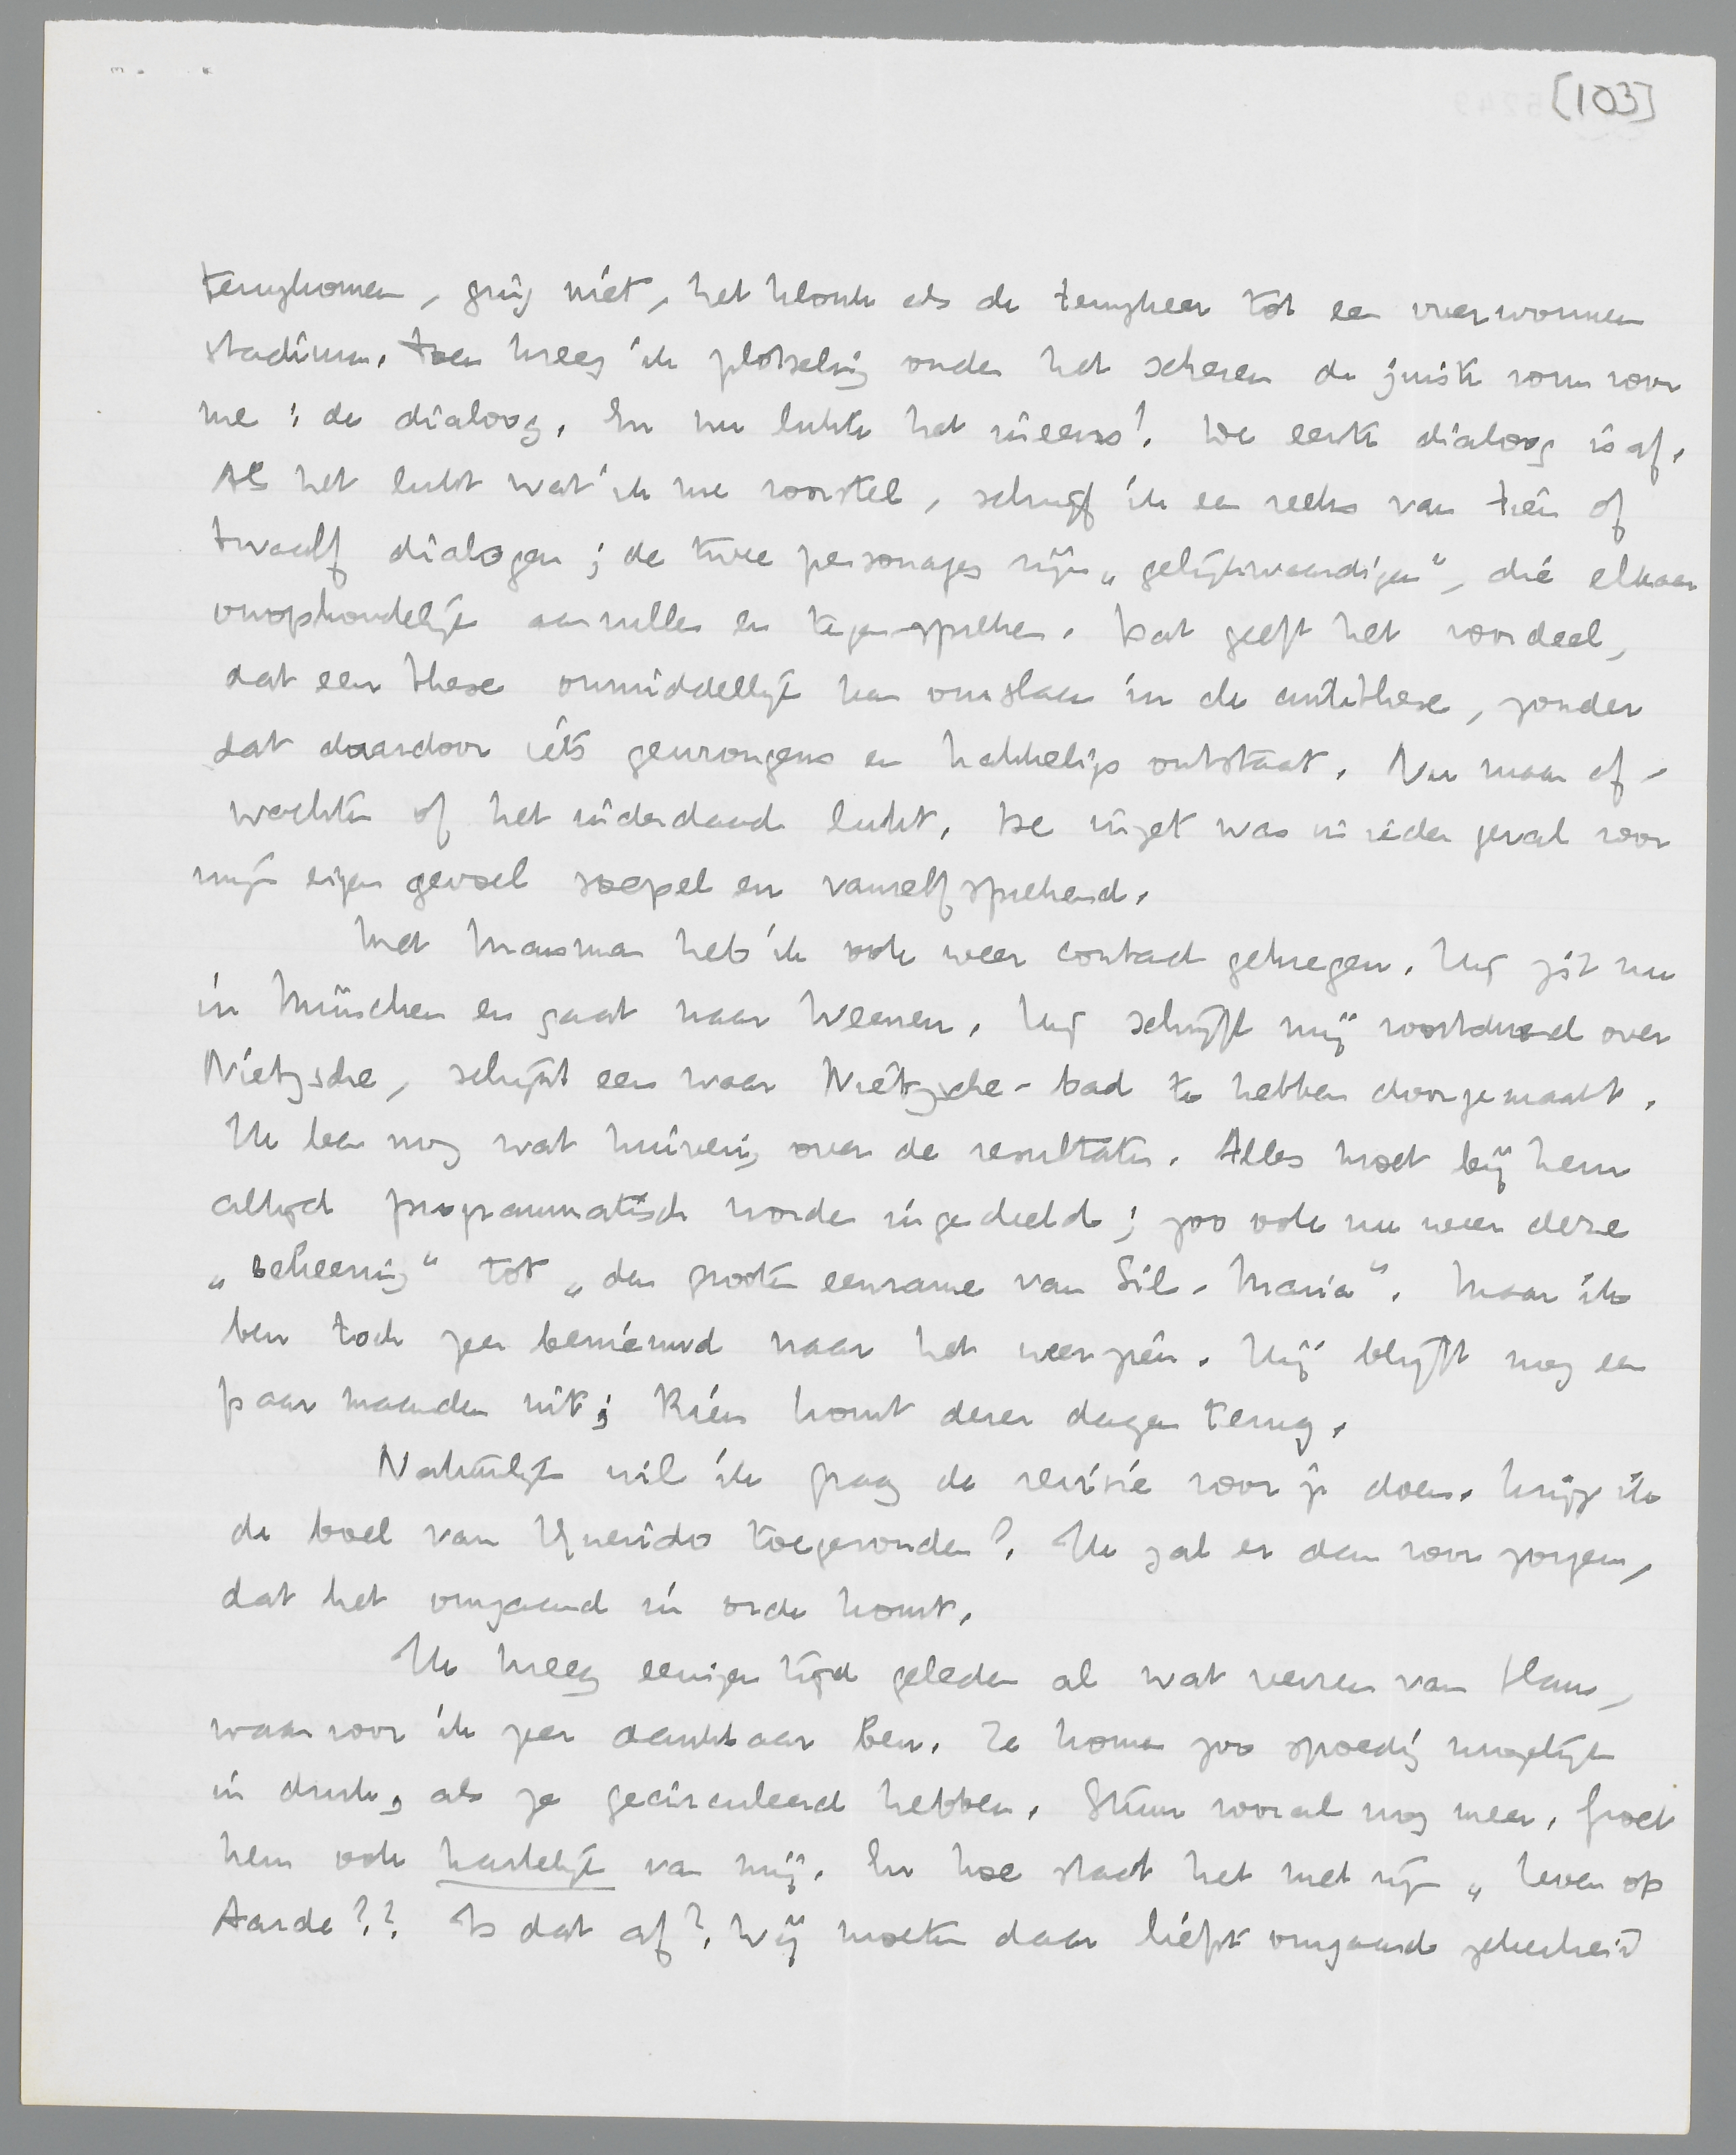 [103]
terugkomen, ging niet, het klonk als de terugkeer tot een overwonnen
stadium. Toen kreeg ik plotseling onder het scheren de juiste vorm voor
me: de dialoog. En nu lukte het ineens! De eerste dialoog is af.
Als het lukt wat ik me voorstel, schrijf ik een reeks van tien of
twaalf dialogen; de twee personages zijn „gelijkwaardigen", die elkaar
onophoudelijk aanvullen en tegenspreken. Dat geeft het voordeel,
dat een these onmiddellijk kan omslaan in de antithese, zonder
dat daardoor iets gewrongens en hakkeligs ontstaat. Nu maar af-
wachten of het inderdaad lukt. De inzet was in ieder geval voor
mijn eigen gevoel soepel en vanzelfsprekend.
Met Marsman heb ik ook weer contact gekregen. Hij zit nu
in München en gaat naar Weenen. Hij schrijft mij voortdurend over
Nietzsche, schijnt een waar Nietzsche-bad te hebben doorgemaakt.
Ik ben nog wat huiverig over de resultaten. Alles moet bij hem
altijd programmatisch worden ingedeeld; zoo ook nu weer deze
„bekeering" tot „den grooten eenzame van Sils-Maria". Maar ik
ben toch zeer benieuwd naar het weerzien. Hij blijft nog een
paar maanden uit; Rien komt dezer dagen terug.
Natuurlijk wil ik graag de revisie voor je doen. Krijg ik
de boel van Querido toegezonden? Ik zal er dan voor zorgen,
dat het omgaand in orde komt.
Ik kreeg eenigen tijd geleden al wat verzen van Hans,
waarvoor ik zeer dankbaar ben. Ze komen zoo spoedig mogelijk
in druk, als ze gecirculeerd hebben. Stuur vooral nog meer. Groet
hem ook hartelijk van mij. En hoe staat het met zijn „Leven op
Aarde?? Is dat af? Wij moeten daar liefst omgaande zekerheid